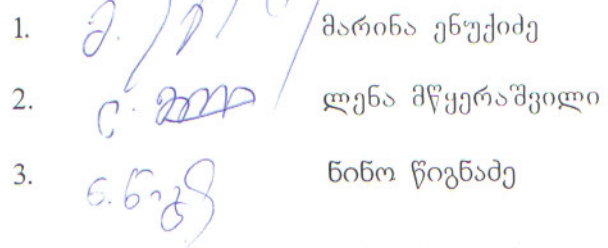 1. მარინა ენუქიძე
2. ლენა მწყერაშვილი
3. ნინო წიგნაძე